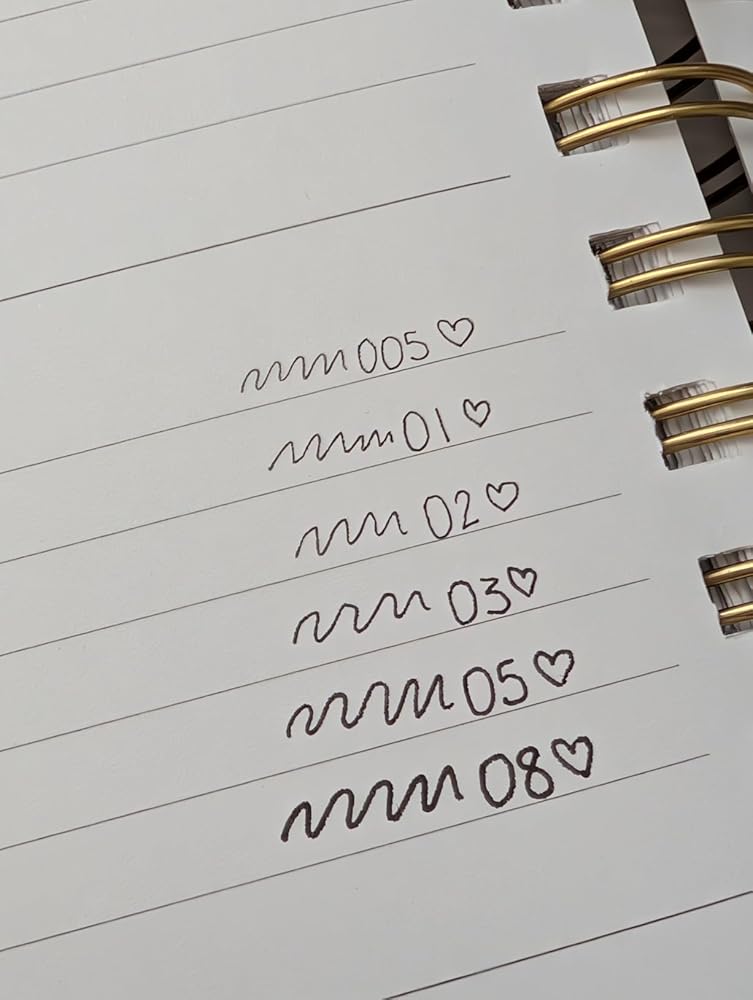 005♡
01♡
02♡
03♡
05♡
08♡